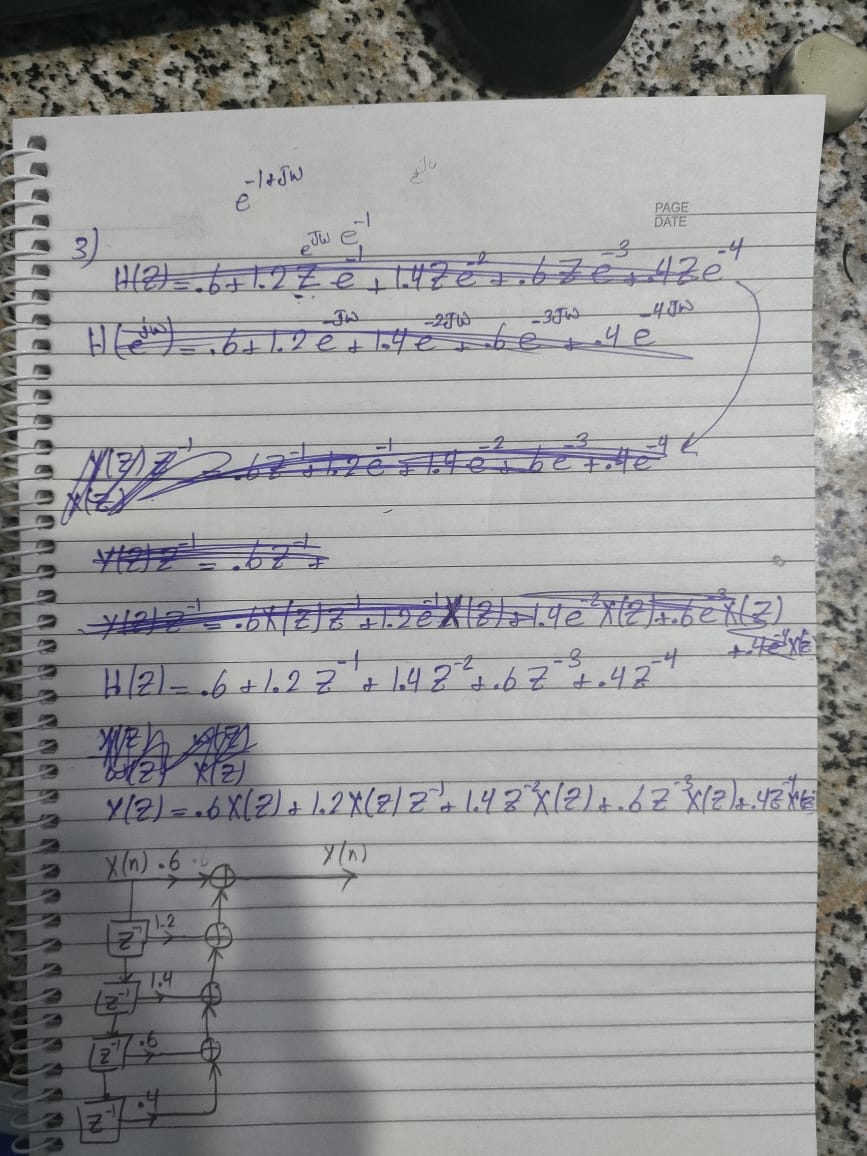 e^{-1+Jω}
e^{Jω}
PAGE
DATE
3)
e^{Jω} e^{-1}
H(Z)=.6+1.2 Z e^{-1}+1.4Z e^{-2}+.6Z e^{-3}+.4Z e^{-4}
H(e^{jω})=.6+1.2e^{-Jω}+1.4e^{-2Jω}+.6e^{-3Jω}+.4e^{-4Jω}
Y(Z)Z^{-1} = .6Z^{-1}+1.2e^{-1}+1.4e^{-2}+.6e^{-3}+.4e^{-4}
X(Z)
Y(Z)Z^{-1} = .6Z^{-1}+
Y(Z)Z^{-1} = .6X(Z)Z^{-1}+1.2e^{-1}X(Z)+1.4e^{-2}X(Z)+.6e^{-3}X(Z)
+.4e^{-4}X(Z)
H(Z)=.6+1.2Z^{-1}+1.4Z^{-2}+.6Z^{-3}+.4Z^{-4}
Y(Z) W(Z)
W(Z) X(Z)
Y(Z)=.6X(Z)+1.2X(Z)Z^{-1}+1.4Z^{-2}X(Z)+.6Z^{-3}X(Z)+.4Z^{-4}X(Z)
X(n) .6 Y(n)
Z^{-1} 1.2
Z^{-1} 1.4
Z^{-1} .6
Z^{-1} .4